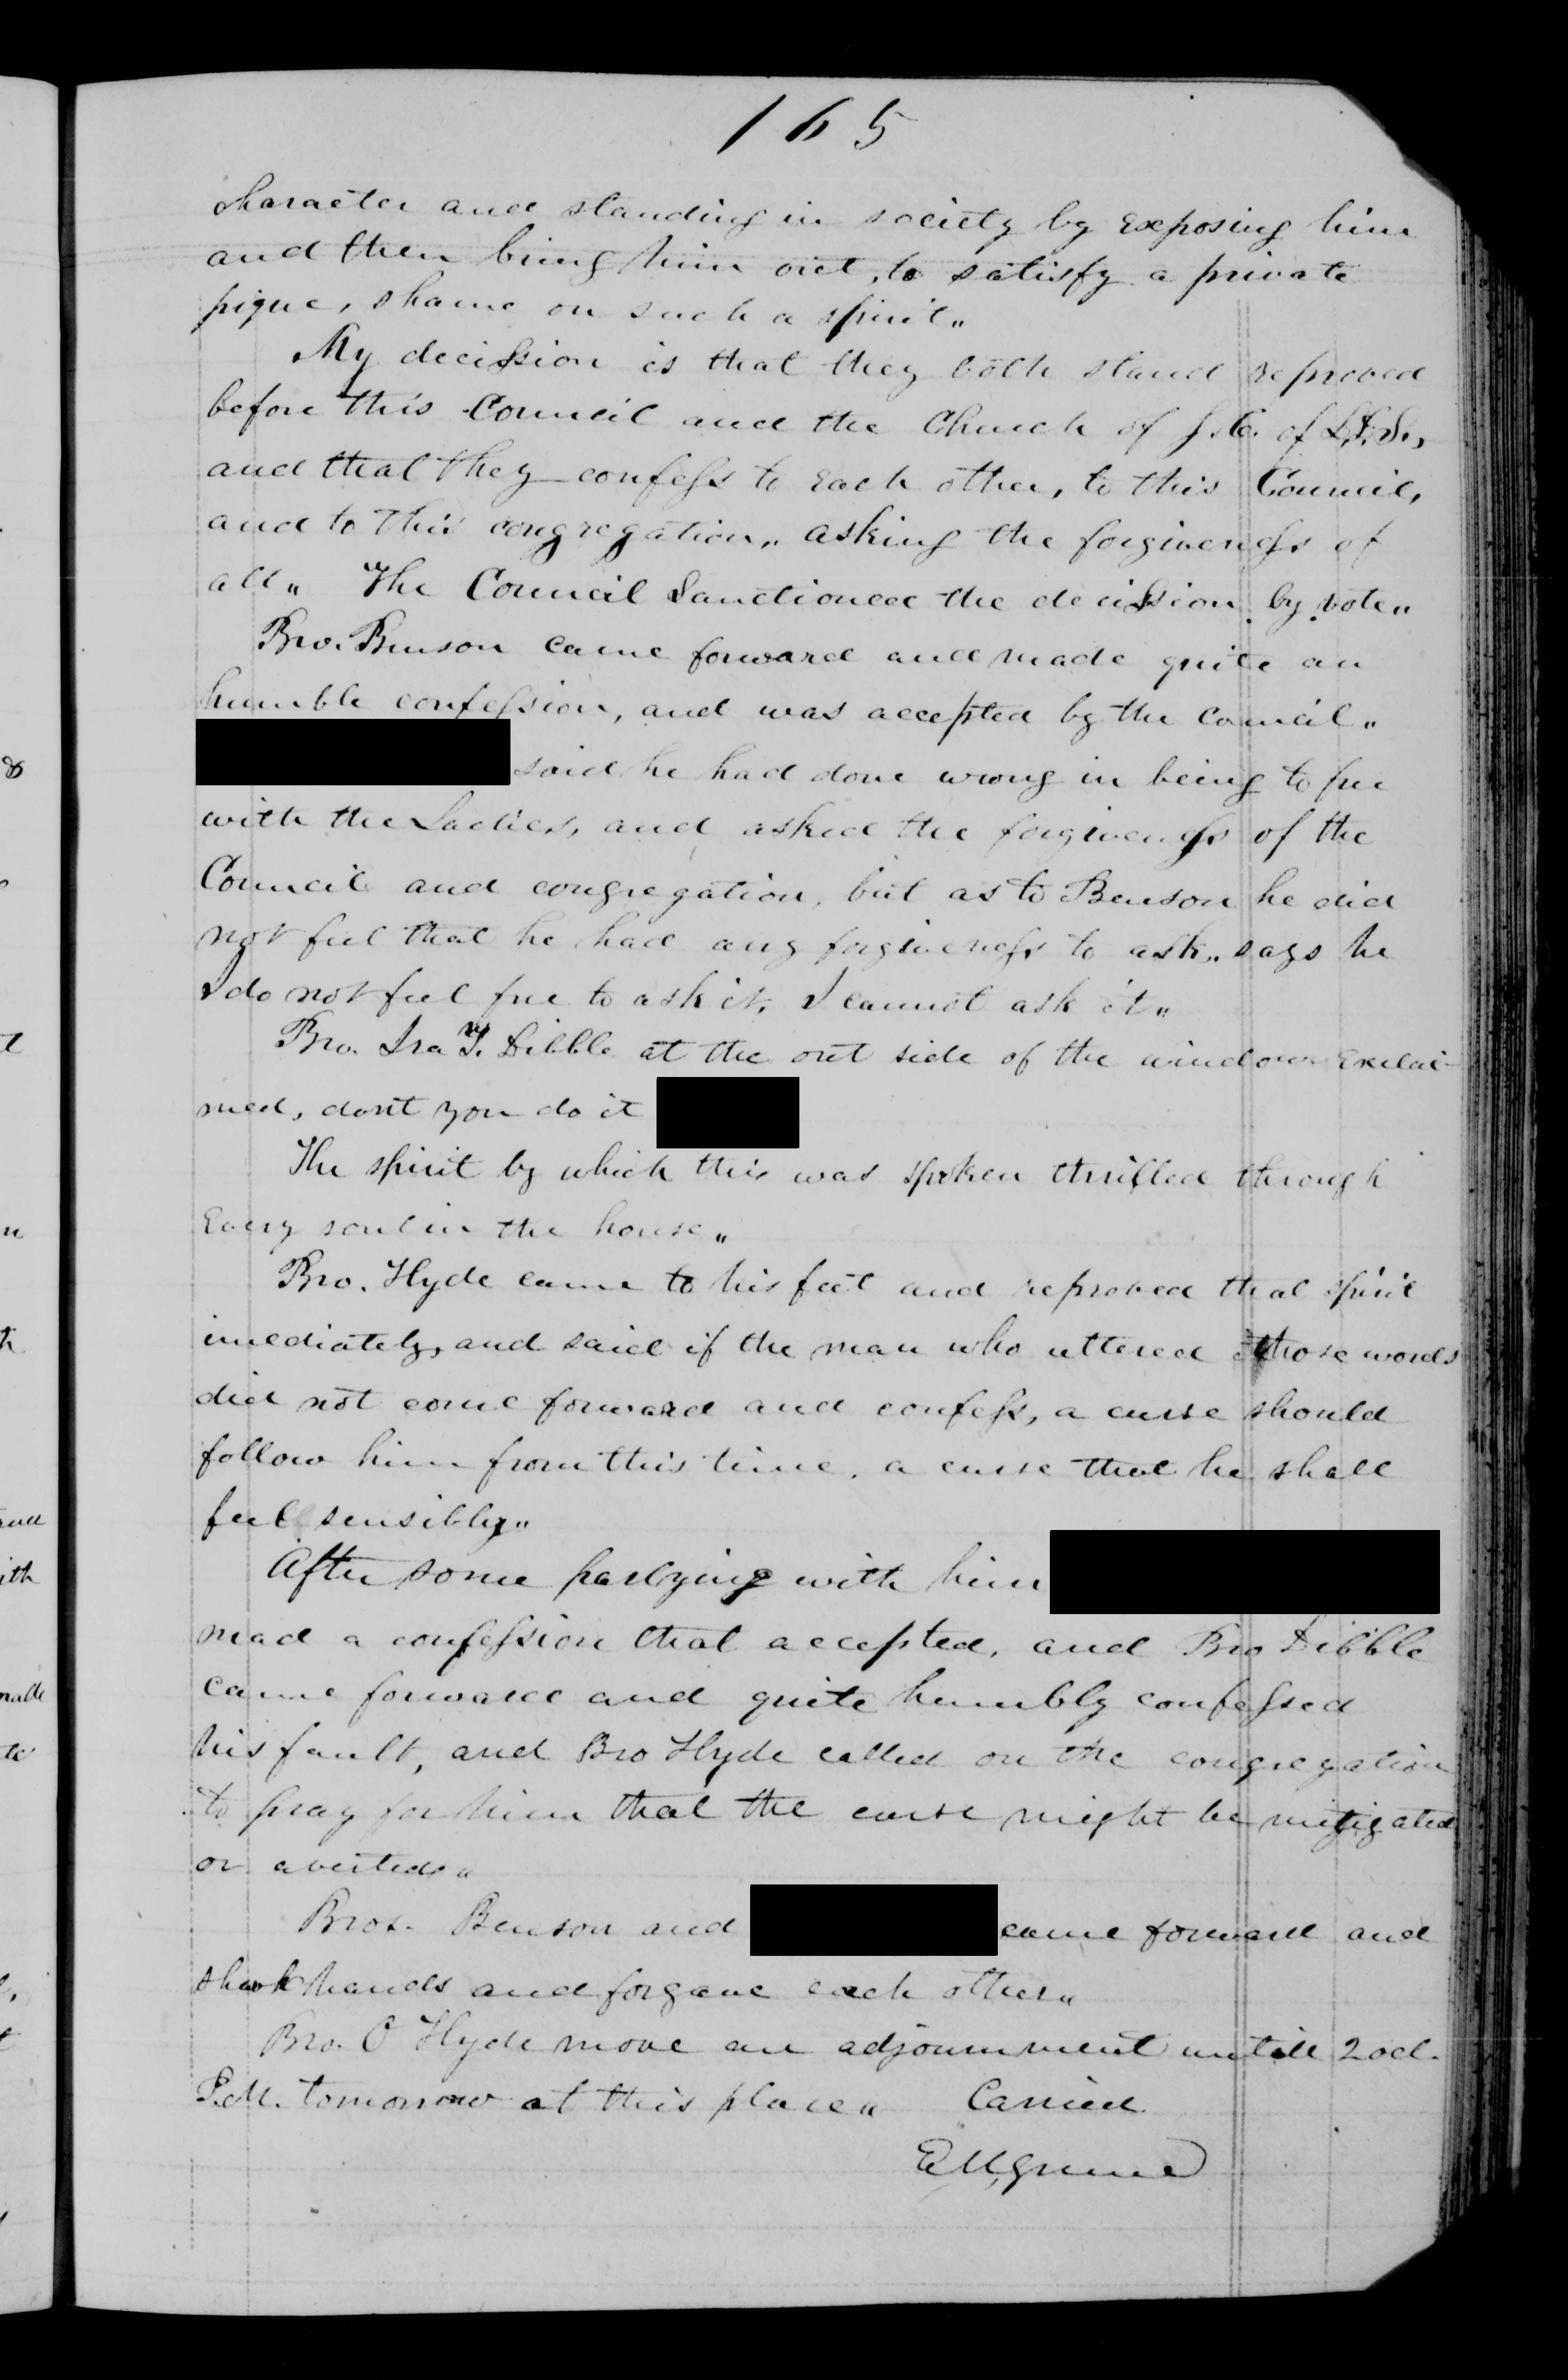 165
character and standing in society by exposing him
and then bring him out, to satisfy a private
pique, shame on such a spirit„
My decission is that they both stand reproved
before this Council and the Church of J.C. of L.D.S.,
and that they confess to each other, to this Council,
and to this congregation„ asking the forgiveness of
all„ The Council Sanctioned the decission by vote„
Bro. Benson came forward and made quite an
humble confession, and was accepted by the council„
said he had done wrong in being to free
with the Ladies, and asked the forgiveness of the
Council and congregation, but as to Benson he did
not feel that he had any forgiveness to ask„ says he
I do not feel free to ask it, I cannot ask it„
Bro. Ira Dibble at the out side of the window exclai-
med, dont you do it
The spirit by which this was spoken thrilled through
Every soul in the house„
Bro. Hyde came to his feet and reproved that spirit
imediately, and said if the man who uttered those words
did not come forward and confess, a curse should
follow him from this time, a curse that he shall
feel sensibly„
After some parlying with him
mad a confession that accepted, and Bro Dibble
came forward and quite humbly confessed
his fault, and Bro Hyde called on the congregation
to pray for him that the curse might be mitigated
or averted„
Bros. Benson and came forward and
shook hands and forgave each other„
Bro. O Hyde move an adjournment untill 2 ocl.
P.M. tomorrow at this place„ Carried.